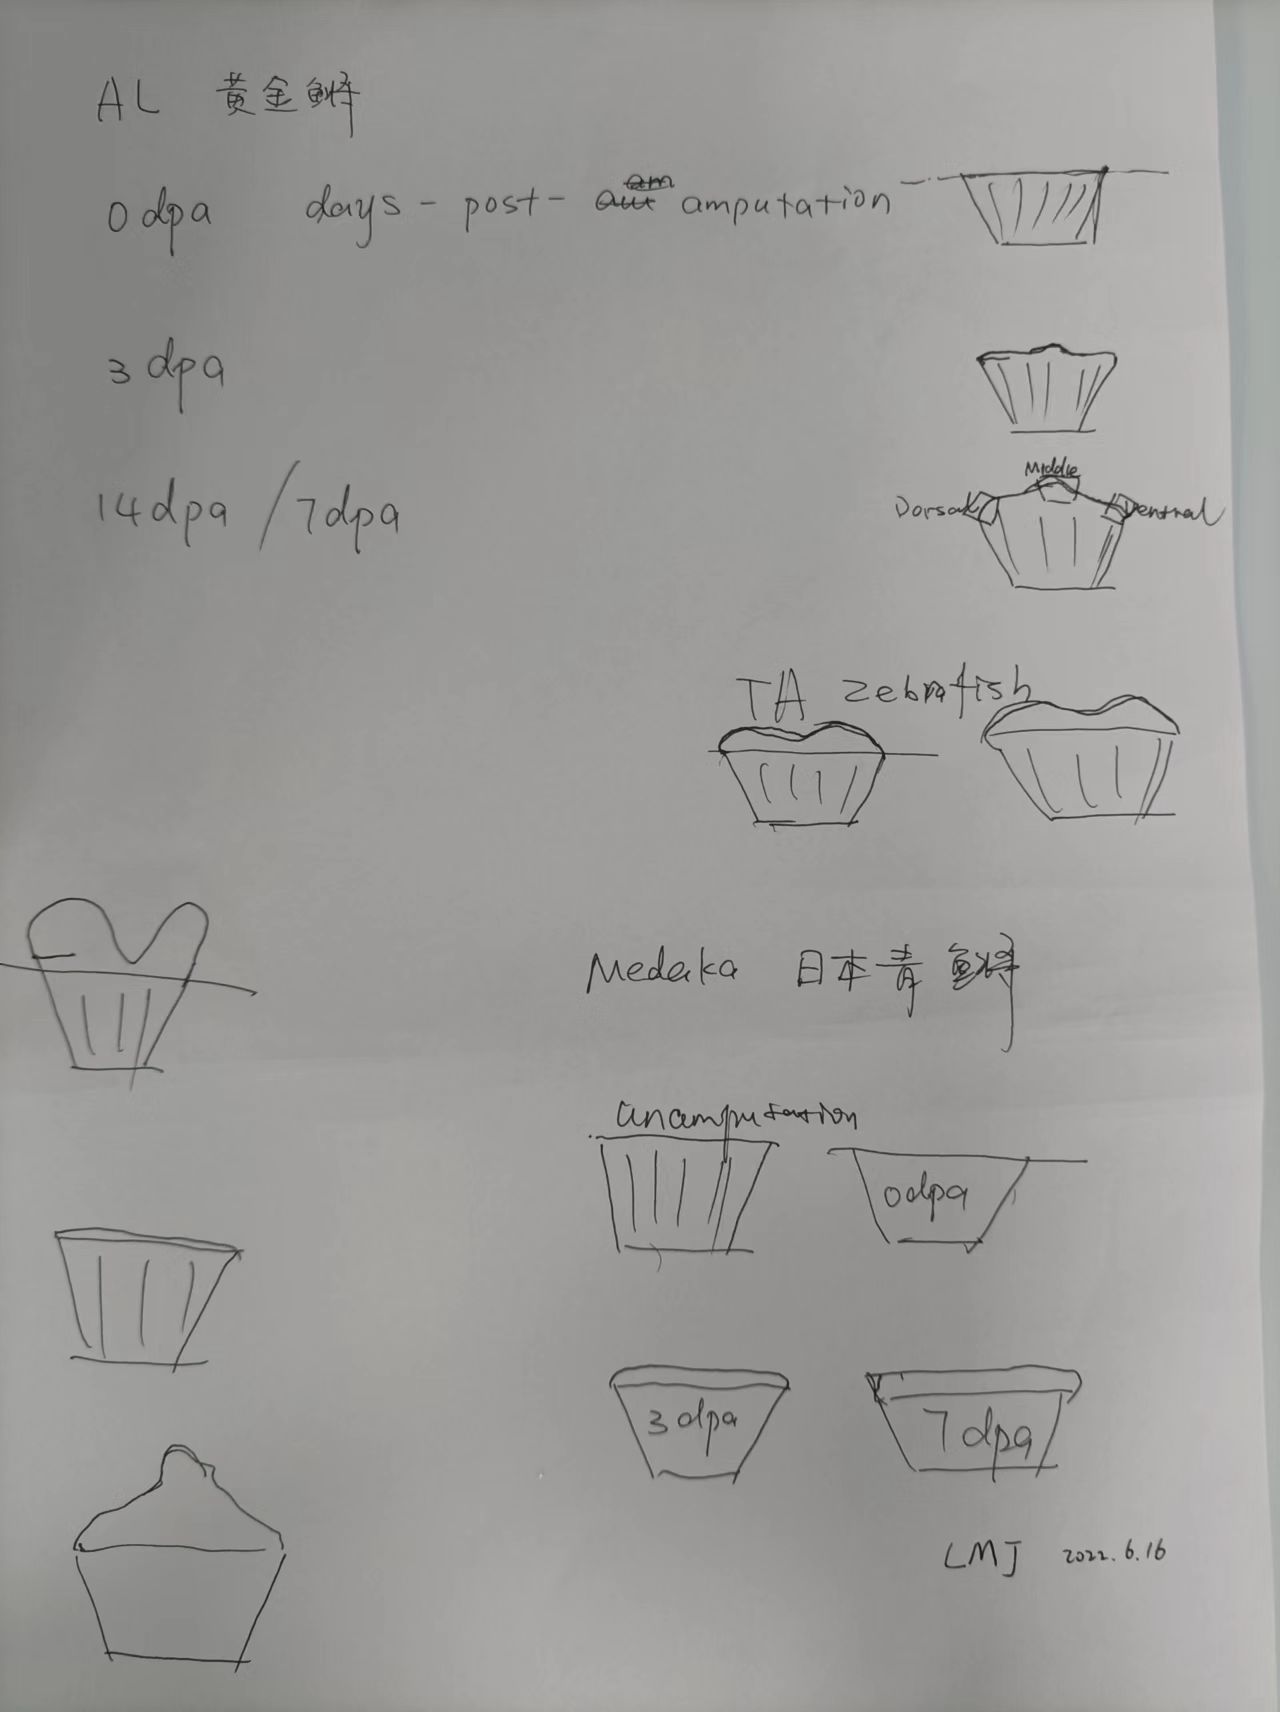 AL 黄金鳉
0 dpa days - post - amputation
3 dpa
Middle
Dorsal Ventral
14 dpa / 7 dpa
TA zebrafish
Medaka 日本青鳉
unamputation
0 dpa
3 dpa 7 dpa
LMJ 2022.6.16